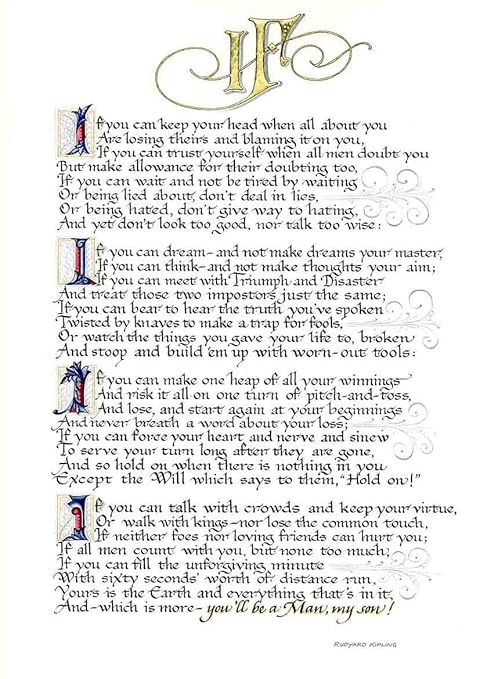 IF
If you can keep your head when all about you
Are losing theirs and blaming it on you,
If you can trust yourself when all men doubt you
But make allowance for their doubting too,
If you can wait and not be tired by waiting
Or being lied about, don't deal in lies,
Or being hated, don't give way to hating,
And yet don't look too good, nor talk too wise:
If you can dream-and not make dreams your master,
If you can think-and not make thoughts your aim;
If you can meet with Triumph and Disaster
And treat those two impostors just the same;
If you can bear to hear the truth you've spoken
Twisted by knaves to make a trap for fools,
Or watch the things you gave your life to, broken
And stoop and build 'em up with worn-out tools:
If you can make one heap of all your winnings
And risk it all on one turn of pitch-and-toss,
And lose, and start again at your beginnings
And never breath a word about your loss;
If you can force your heart and nerve and sinew
To serve your turn long after they are gone,
And so hold on when there is nothing in you
Except the Will which says to them, "Hold on!"
If you can talk with crowds and keep your virtue,
Or walk with kings-nor lose the common touch,
If neither foes nor loving friends can hurt you;
If all men count with you, but none too much;
If you can fill the unforgiving minute
With sixty seconds' worth of distance run,
Yours is the Earth and everything that's in it,
And-which is more-you'll be a Man, my son!
RUDYARD KIPLING